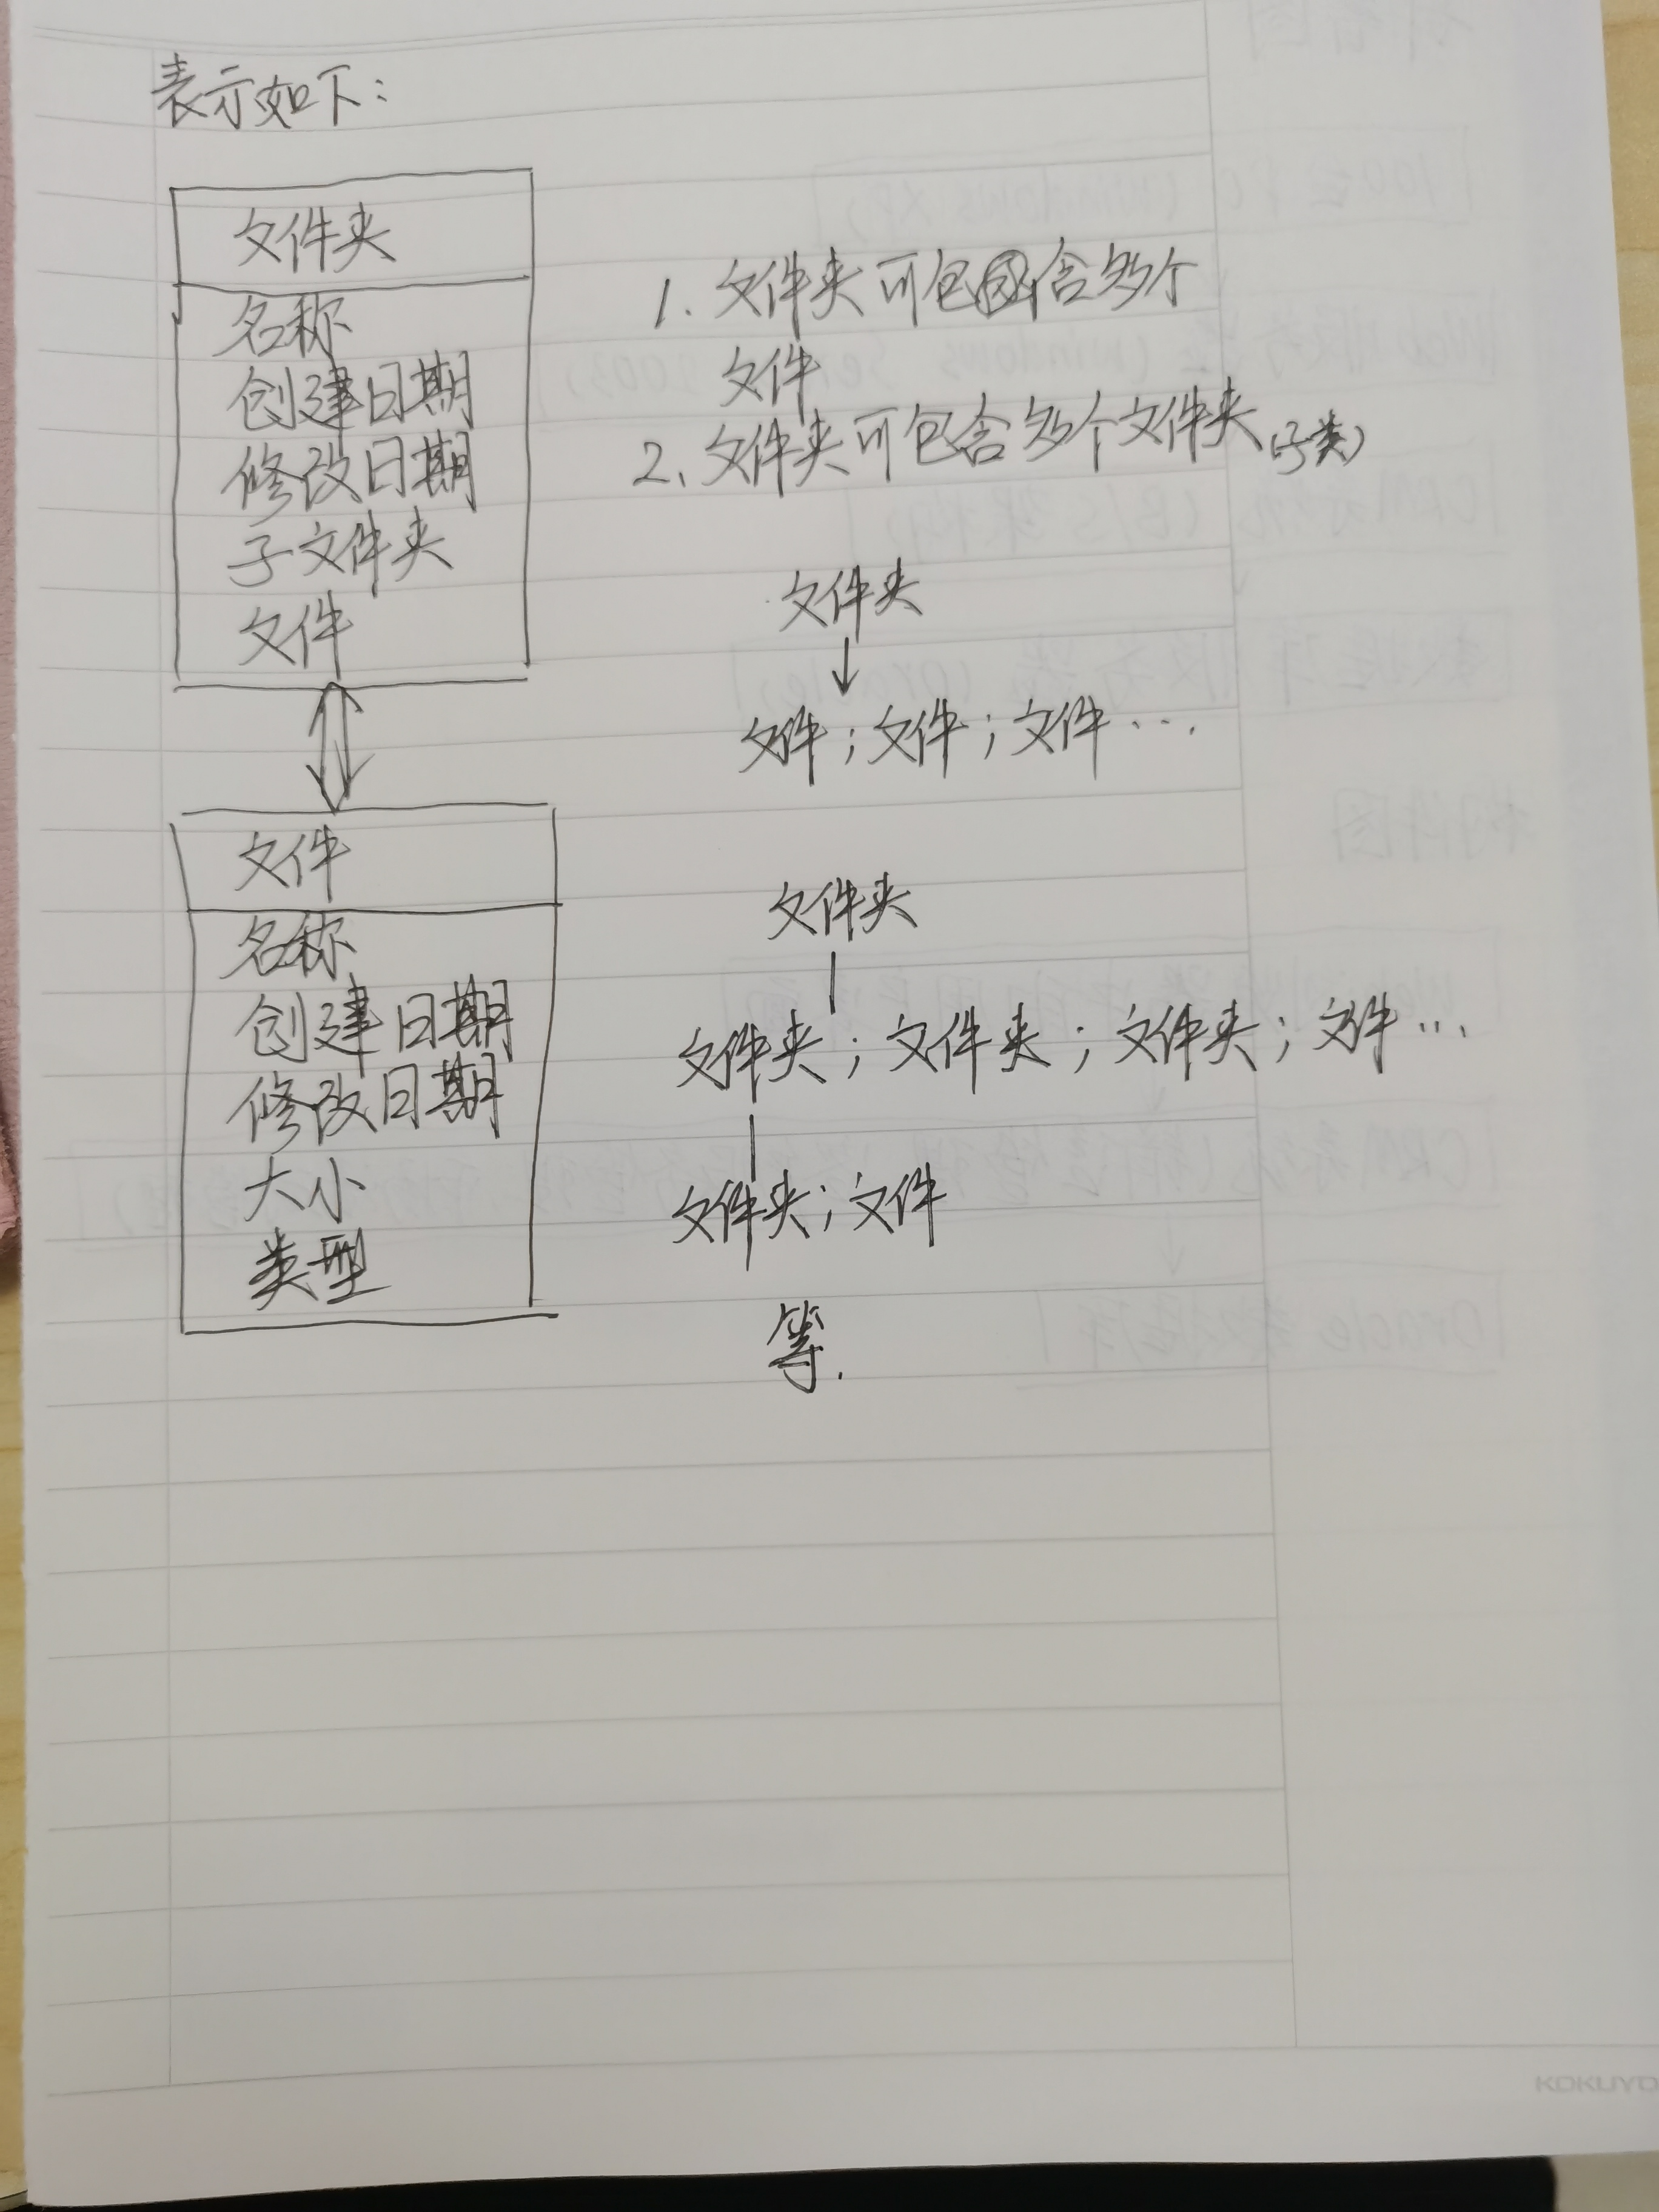 表示如下：
文件夹
名称
创建日期
修改日期
子文件夹
文件
文件
名称
创建日期
修改日期
大小
类型
1. 文件夹可包含多个
文件
2. 文件夹可包含多个文件夹(子类)
文件夹
文件；文件；文件…
文件夹
文件夹；文件夹；文件夹；文件…
文件夹；文件
等.
KOKUYO